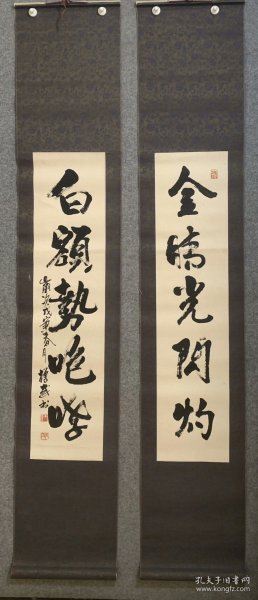 金睛光閃灼
白額勢咆哮
歲次戊寅春月
孔夫子旧书网
www.kongfz.com